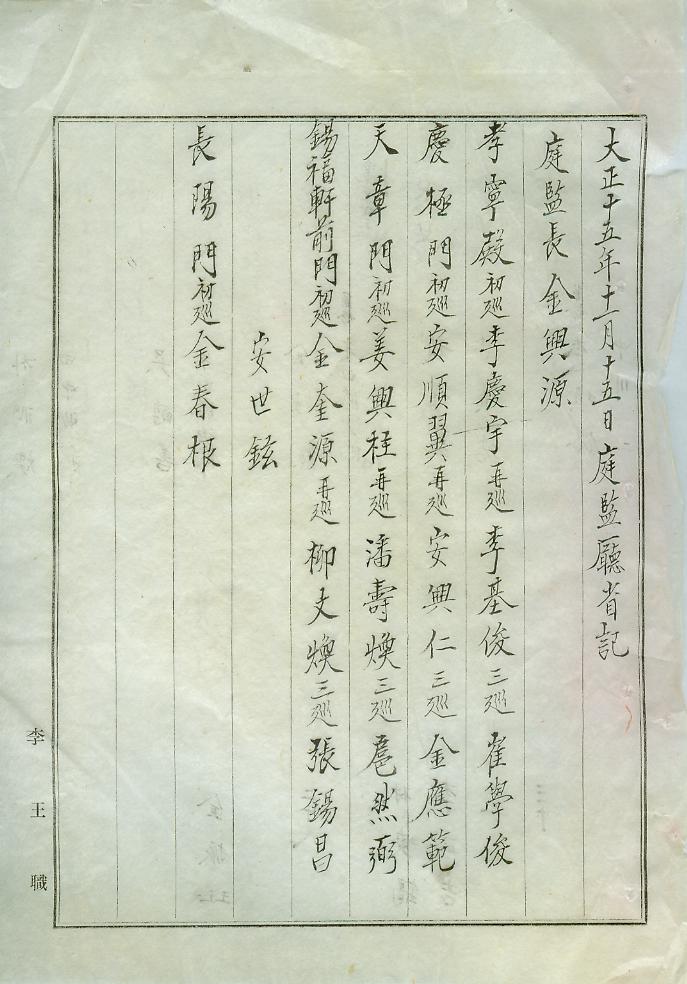 大正十五年十一月十五日庭監廳省記
庭監長金興源
孝寧殿初巡李慶宇再巡李基俊三巡崔學俊
慶極門初巡安順翼再巡安興仁三巡金應範
天章門初巡姜興柱再巡潘壽煥三巡扈然弼
錫福軒前門初巡金奎源再巡柳文煥三巡張錫昌
安世鉉
長陽門初巡金春根
李王職